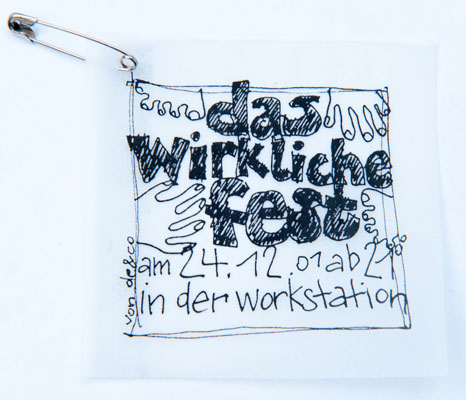 das
wirkliche
fest
am 24.12.01 ab 21
in der workstation
von de&co